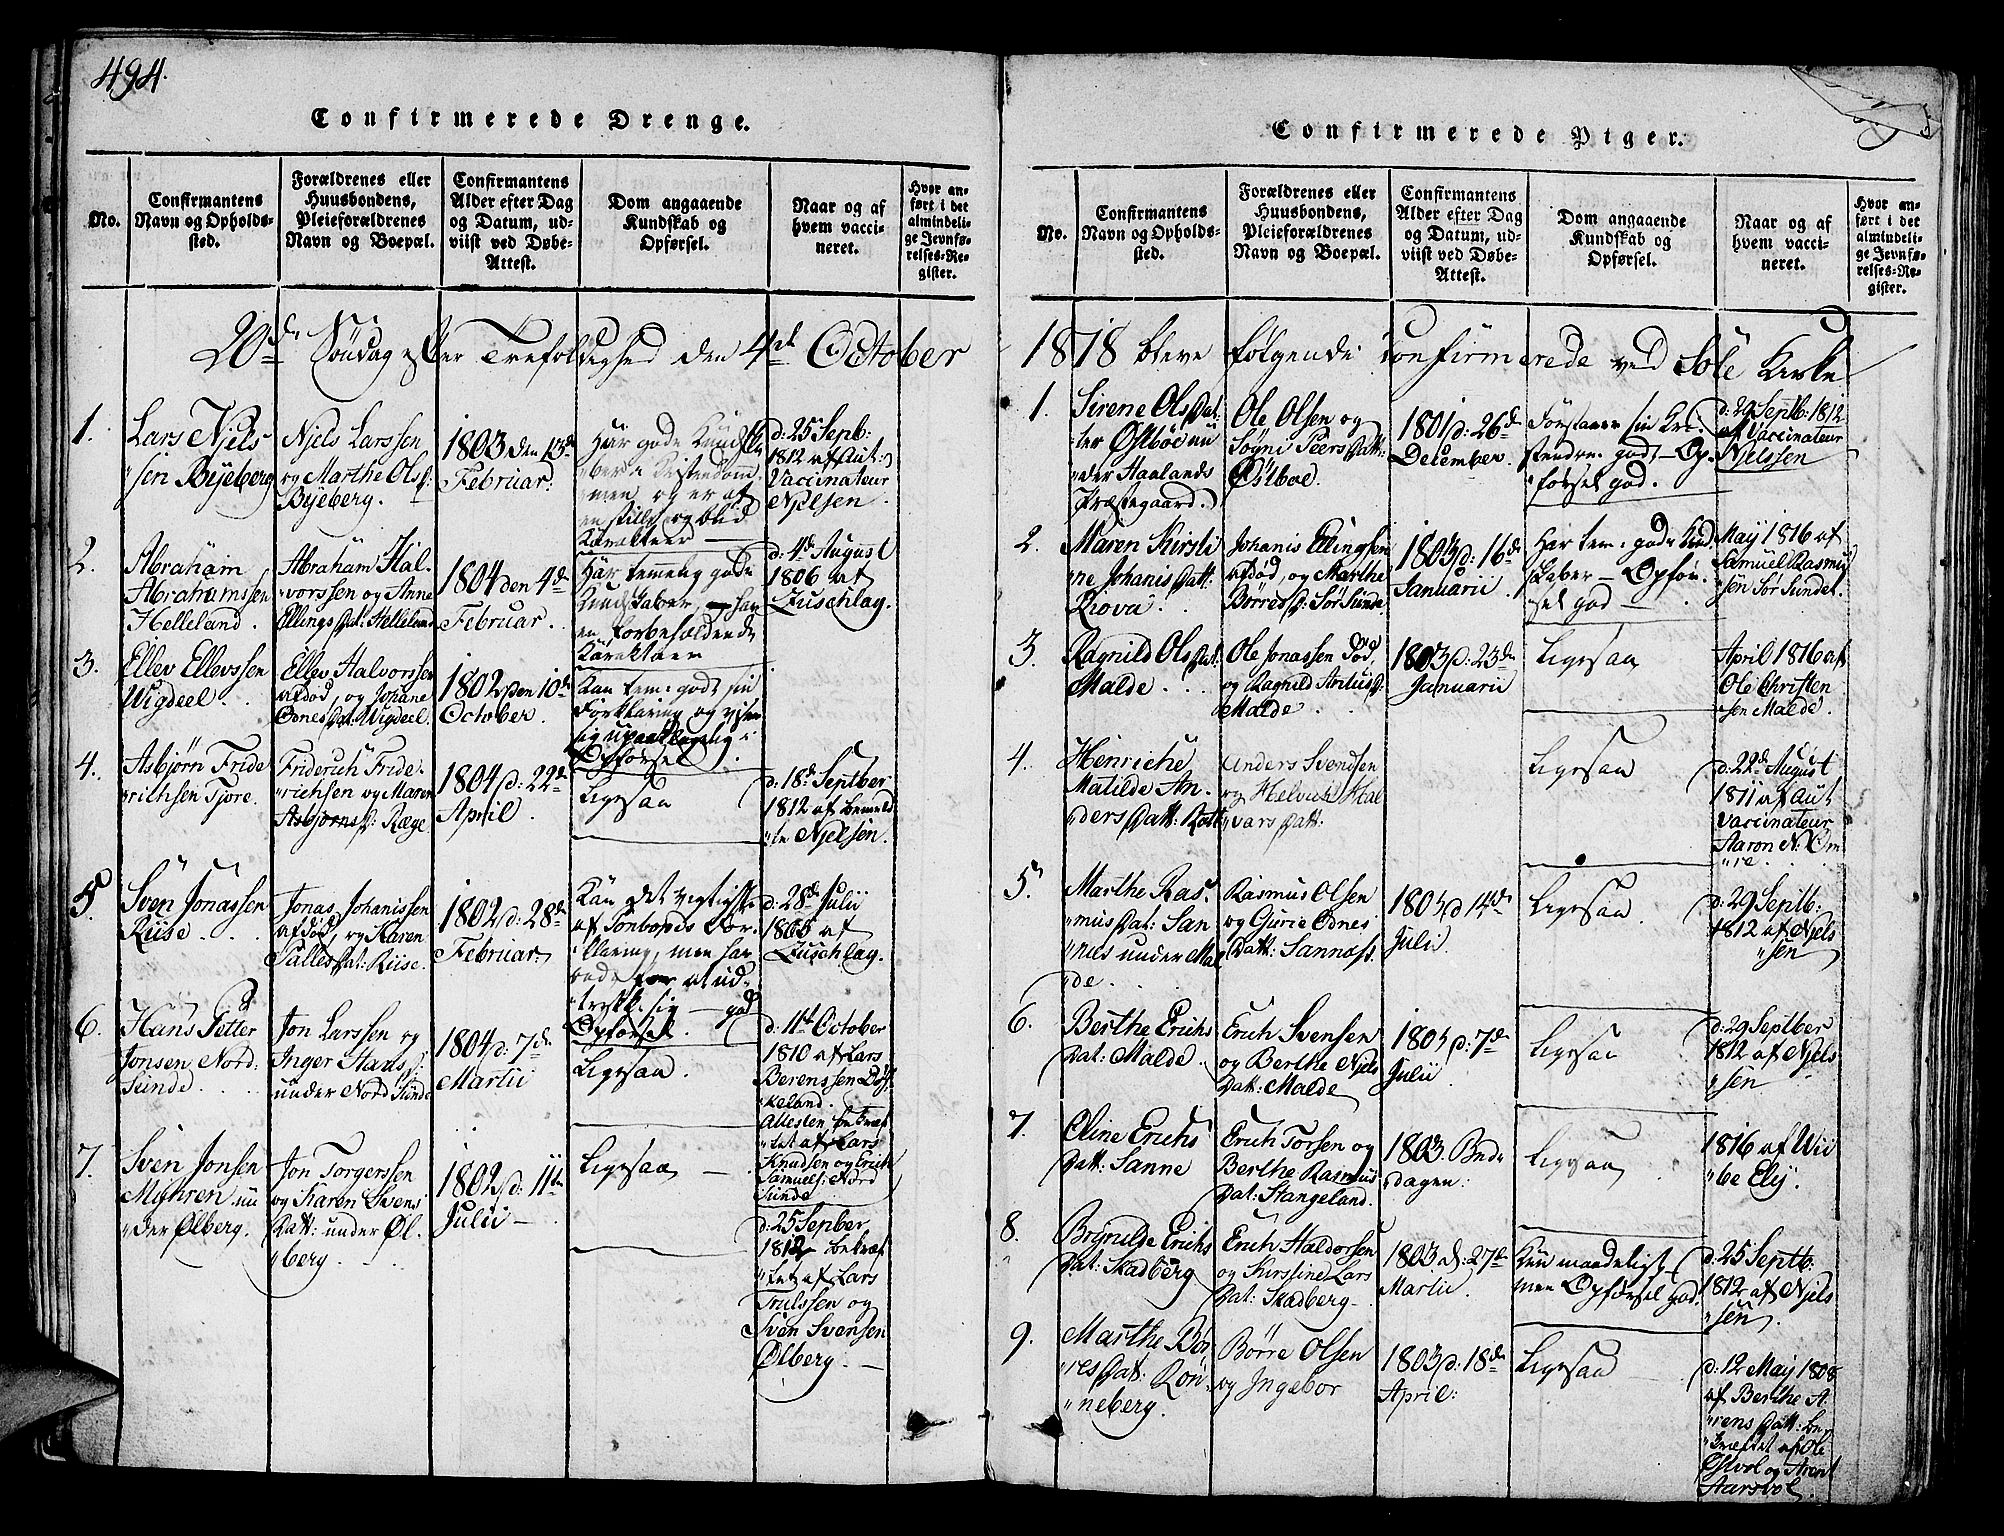 494.
Confirmerede Drenge.
No.
Confirmantens
Navn og Opholds-
sted.
Forældrenes eller
Huusbondens,
Pleieforældrenes
Navn og Boepæl.
Confirmantens
Alder efter Dag
og Datum, ud-
viist ved Døbe-
Attest.
Dom angaaende
Kundskab og
Opførsel.
Naar og af
hvem vacci-
neret.
Hvor an-
ført i det
almindeli-
ge Jevnfø-
relses-Re-
gister.
20de Søndag efter Trefoldighed den 4de October
1.
Lars Njels
sen Byeberg
Njels Larssen
og Marthe Ols D:
Byeberg.
1803 den 13de
Februar:
Har gode Kundska
ber i Kristendom
men, og er af
en stille og blid
Karakteer
d: 25 Septb:
1812 af Aut:
Vaccinateur
Njelsen
2.
Abraham
Abrahamssen
Helleland.
Abraham Hal-
vorssen og Anne
Ellings Dat: Helleland
1804 den 4de
Februar.
Har temmelig gode
Kundskaber, har
en forbeholdende
Karakteer
d: 4de August
1806 af
Zuschlag.
3.
Ellev Ellevssen
Wigdeel.
Ellev Halvorssen
afdød, og Johane
Ednes Dat: Wigdeel.
1802 den 10de
October.
Kan tem: godt sin
Forklaring og viser
sig upaaklagelig i
Opførsel.
4.
Asbjørn Fride
richsen Tjore.
Friderich Fride-
richsen og Maren
Asbjørns D: Ræge
1804 d: 22de
April.
Ligesaa
d: 18de Septber
1812 af bemeld
te Njelsen.
5.
Sven Jonassen
Riise.
Jonas Johanissen
afdød, og Karen
Salles Dat: Riise.
1802 d: 28de
Februar:
Kan det vigtigste
af Pontoppid: For-
klaring, men har
ondt for at ud-
trykke sig — god
Opførsel.
d: 28de Julii
1805 af
Zuschlag.
6.
Hans Petter
Jonsen Nord
Sunde.
Jon Larssen og
Inger Hans D:
under Nord Sunde
1804 d: 7de
Martii
Ligesaa.
d: 11te October
1810 af Lars
Berenssen Bøs
keland.
Attesten bekræf
tet af Lars
Knudsen og Erich
Samuels: Nord
Sunde.
7.
Sven Jonsen
Myhren un
der Ølberg.
Jon Torgerssen
og Karen Svens
Datt: under Øl
berg.
1802 d: 11te
Julii
Ligesaa
d: 25 Septber
1812 bekræf
tet af Lars
Trulssen og
Sven Svensen
Ølberg.
Confirmerede Piger.
No.
Confirmantens
Navn og Opholds-
sted.
Forældrenes eller
Huusbondens,
Pleieforældrenes
Navn og Boepæl.
Confirmantens
Alder efter Dag
og Datum, ud-
viist ved Døbe-
Attest.
Dom angaaende
Kundskab og
Opførsel.
Naar og af
hvem vacci-
neret.
Hvor an-
ført i det
almindeli-
ge Jevnfø-
relses-Re-
gister.
1818 bleve følgende confirmerede ved Sole Kirke
1.
Sirene Ols Dat:
ter Østbøe un
der Haalands
Præstegaard.
Ole Olsen og
Søgni Peers Datt:
Østboe.
1801 d: 26de
December.
Forstaaer sin Kri
stendom godt — Op-
førsel god.
d: 29 Septb: 1812
af Vaccinateur
Njelssen
2.
Maren Kirsti
ne Johanis Datt:
Riova.
Johanis Ellingsen
afdød, og Marthe
Børres D: Sør Sunde
1803 d: 16de
Januarii
Har tem: gode Kund
skaber — Opfør
sel god
May 1816 af
Samuel Rasmus
sen Sør Sunde.
3.
Ragnild Ols Dat:
Malde.
Ole Jonassen død,
og Ragnild D:
Malde.
1803 d: 23de
Januarii
Ligesaa
April 1816 af
Ole Christen
sen Malde.
4.
Henriche
Matilde An-
ders Datt:
Anders Svendsen
og Helvich Hal
vars Datt:
Ligesaa
d: 22de August
1811 af Aut
Vaccinateur
Aaron N: Om
re.
5.
Marthe Ras-
mus Dat: San
nes under Mal
de.
Rasmus Olsen
og Gurie Ednes
Datt: Sannæss
1803 d 14de
Julii.
Ligesaa
d: 29 Septb:
1812 af Njels
sen
6.
Berthe Erichs
Dat: Malde.
Erich Svensen
og Berthe Njels
Dat: Malde
1803 d: 7de
Julii
Ligesaa
d: 29 Septber
1812 af Njels
sen
7.
Oline Erichs
Datt: Sanne
Erich Torsen og
Berthe Rasmus
Dat: Stangeland.
1803.
dagen:
Ligesaa
1816 af Wii
be Ely.
8.
Brynilde Erichs
Dat: Skadberg
Erich Haldorsen
og Kirstine Lars
Dat: Skadberg
1803 d: 27de
Martii.
Kun maadeligt
men Opførsel god.
d: 25 Septb:
1812 af Njels
sen.
9.
Marthe Bør
res Dat: Røn-
neberg.
Børre Olsen
og Ingebor
1803 d: 18de
April:
Ligesaa
d: 12 May 1808
af Berthe A-
rens Datt: be
kræftet af Ole
Østvol og Arent
Aarsvol.